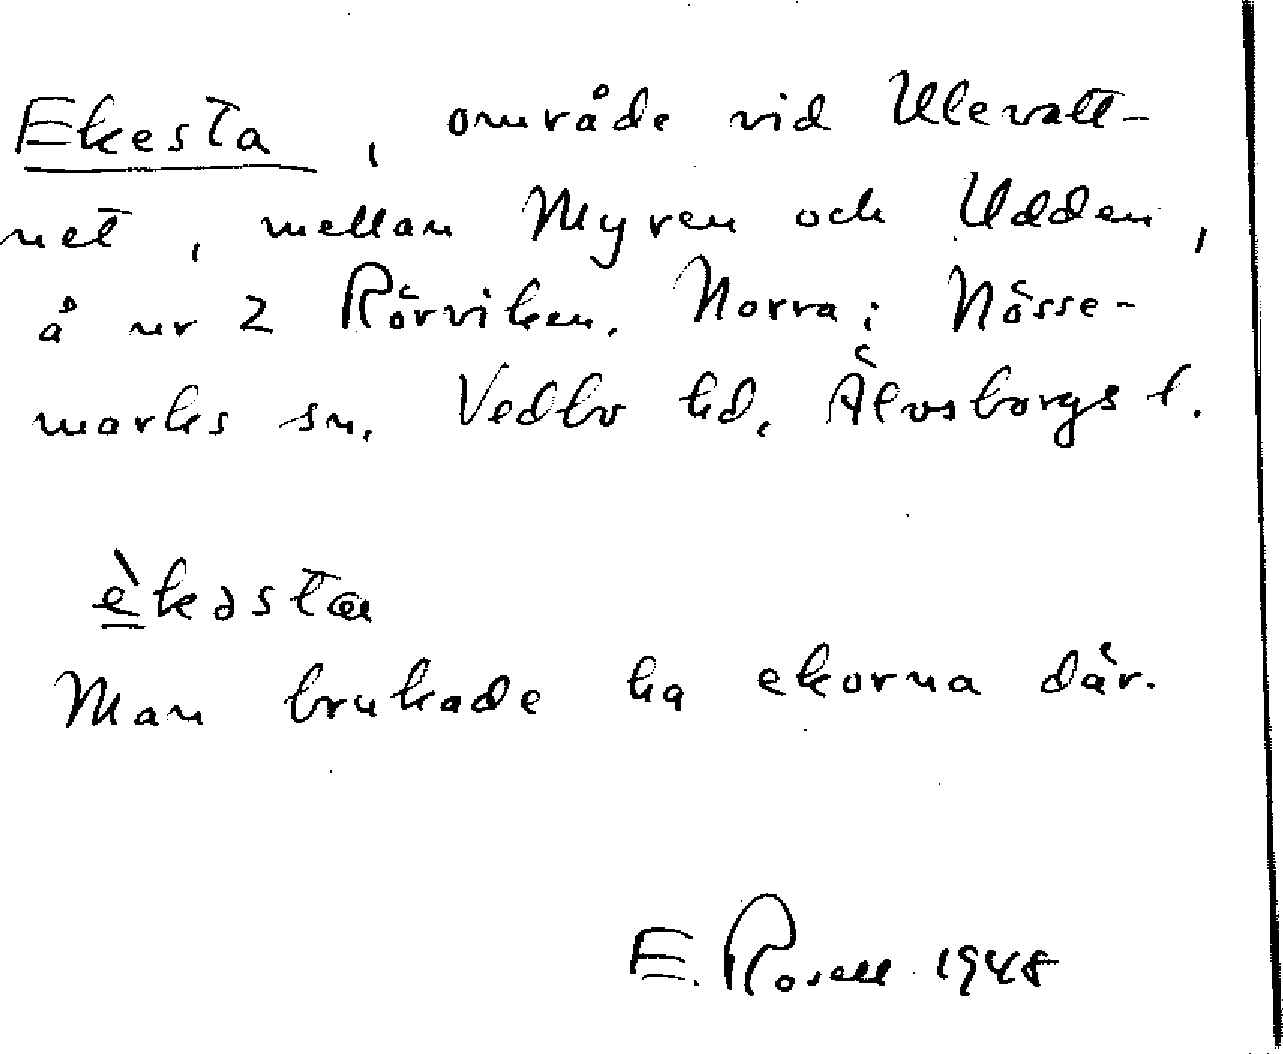 Ekesta, område vid Ulevatt-
net, mellan Myren och Udden,
å nr 2 Rörviken. Norra; Nösse-
marks sn. Vedbo hd, Älvsborgs l.
è̳kəsta
Man brukade ha ekorna där.
E. Rosell 1948